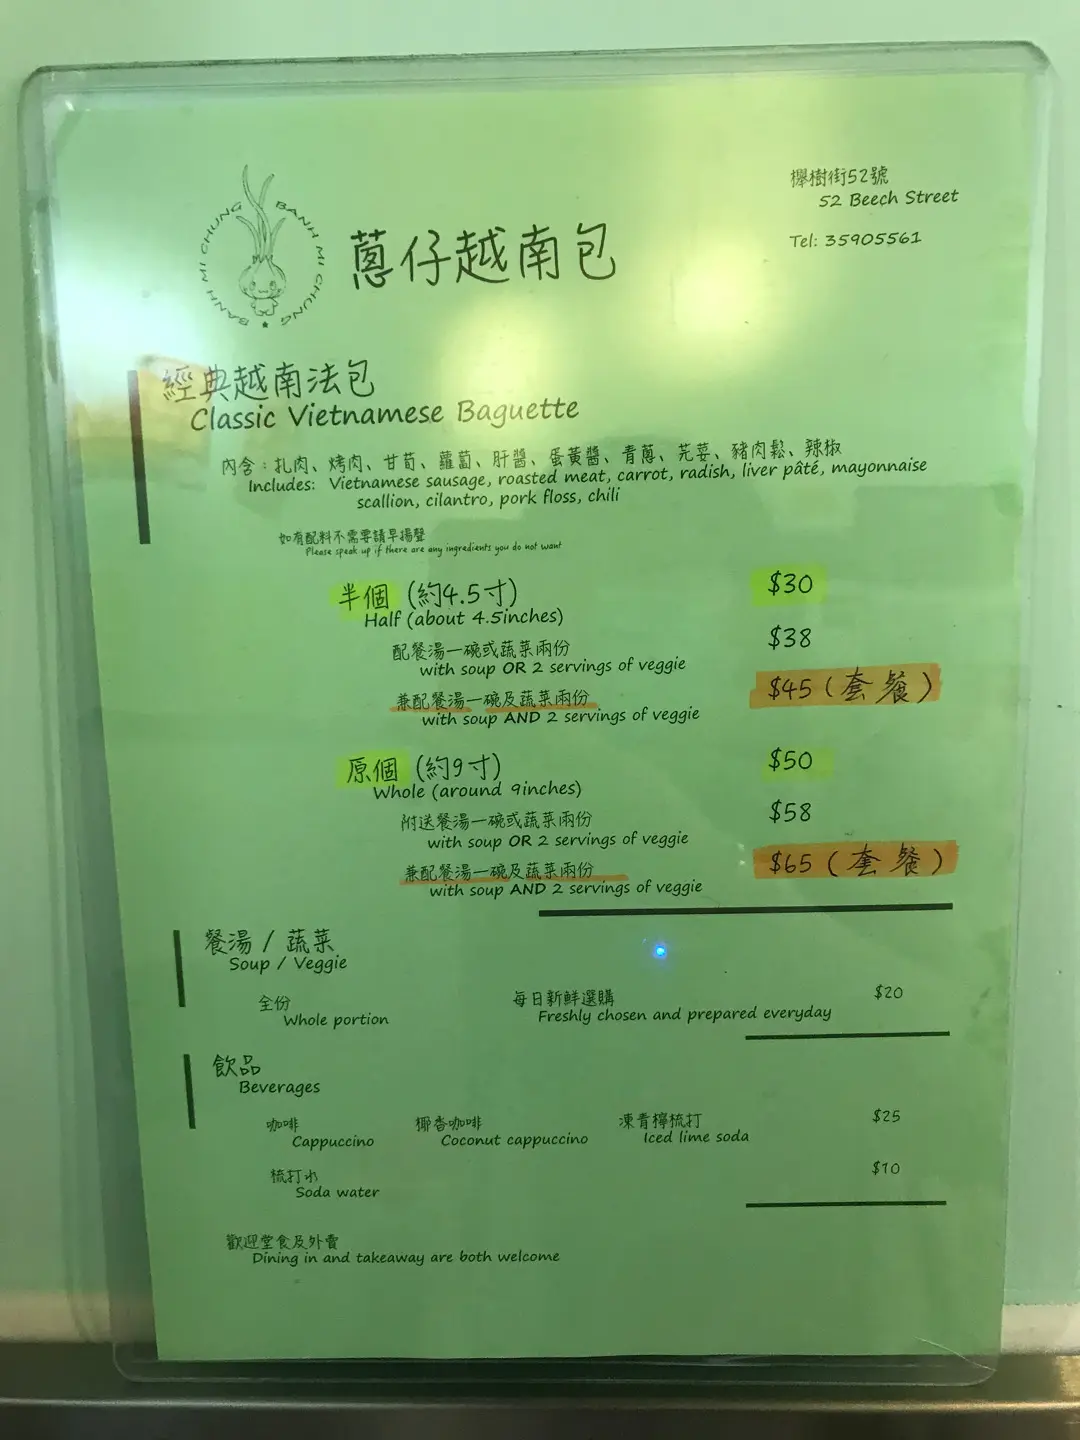 BANH MI CHUNG ★ BANH MI CHUNG
蔥仔越南包
櫸樹街52號
52 Beech Street
Tel: 35905561
經典越南法包
Classic Vietnamese Baguette
內含：扎肉、烤肉、甘荀、蘿蔔、肝醬、蛋黃醬、青蔥、芫荽、豬肉鬆、辣椒
Includes: Vietnamese sausage, roasted meat, carrot, radish, liver pâté, mayonnaise
scallion, cilantro, pork floss, chili
如有配料不需要請早揚聲
Please speak up if there are any ingredients you do not want
半個 (約4.5寸) $30
Half (about 4.5inches)
配餐湯一碗或蔬菜兩份 $38
with soup OR 2 servings of veggie
兼配餐湯一碗及蔬菜兩份 $45 (套餐)
with soup AND 2 servings of veggie
原個 (約9寸) $50
Whole (around 9inches)
附送餐湯一碗或蔬菜兩份 $58
with soup OR 2 servings of veggie
兼配餐湯一碗及蔬菜兩份 $65 (套餐)
with soup AND 2 servings of veggie
餐湯 / 蔬菜
Soup / Veggie
全份 每日新鮮選購 $20
Whole portion Freshly chosen and prepared everyday
飲品
Beverages
咖啡 椰香咖啡 凍青檸梳打 $25
Cappuccino Coconut cappuccino Iced lime soda
梳打水 $10
Soda water
歡迎堂食及外賣
Dining in and takeaway are both welcome